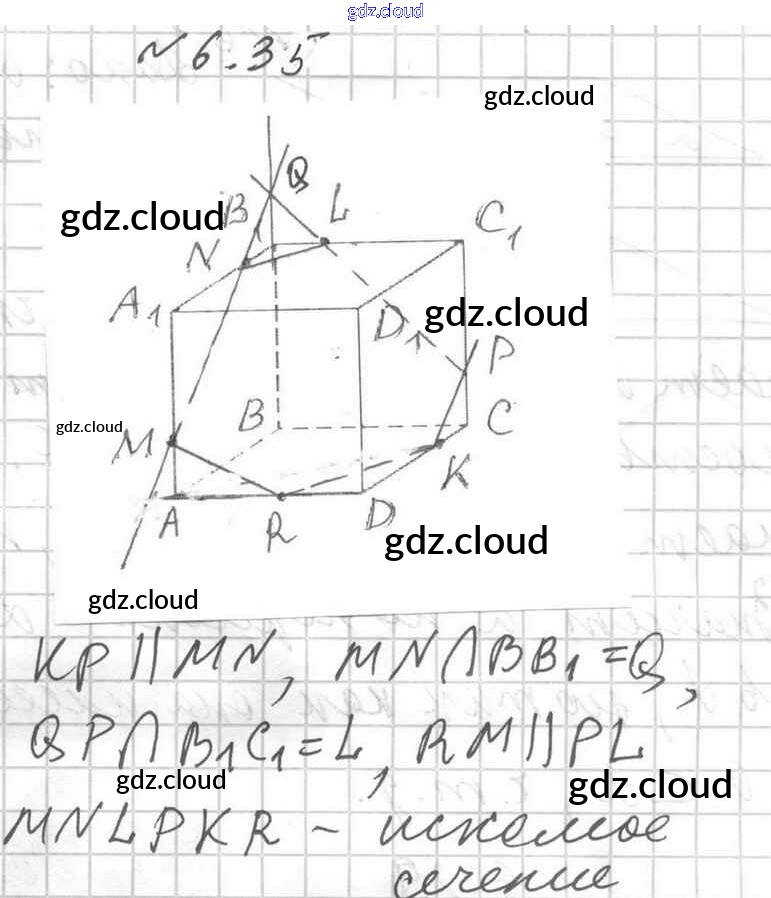 gdz.cloud
№ 6.35
gdz.cloud
Q
gdz.cloud
B
L
C₁
N
A₁
D₁
gdz.cloud
P
gdz.cloud
B
C
M
K
A
R
D
gdz.cloud
gdz.cloud
KP || MN, MN ∩ BB₁ = Q,
QP ∩ B₁C₁ = L, RM || PL
gdz.cloud
gdz.cloud
MNLPKR – искемое
сечение